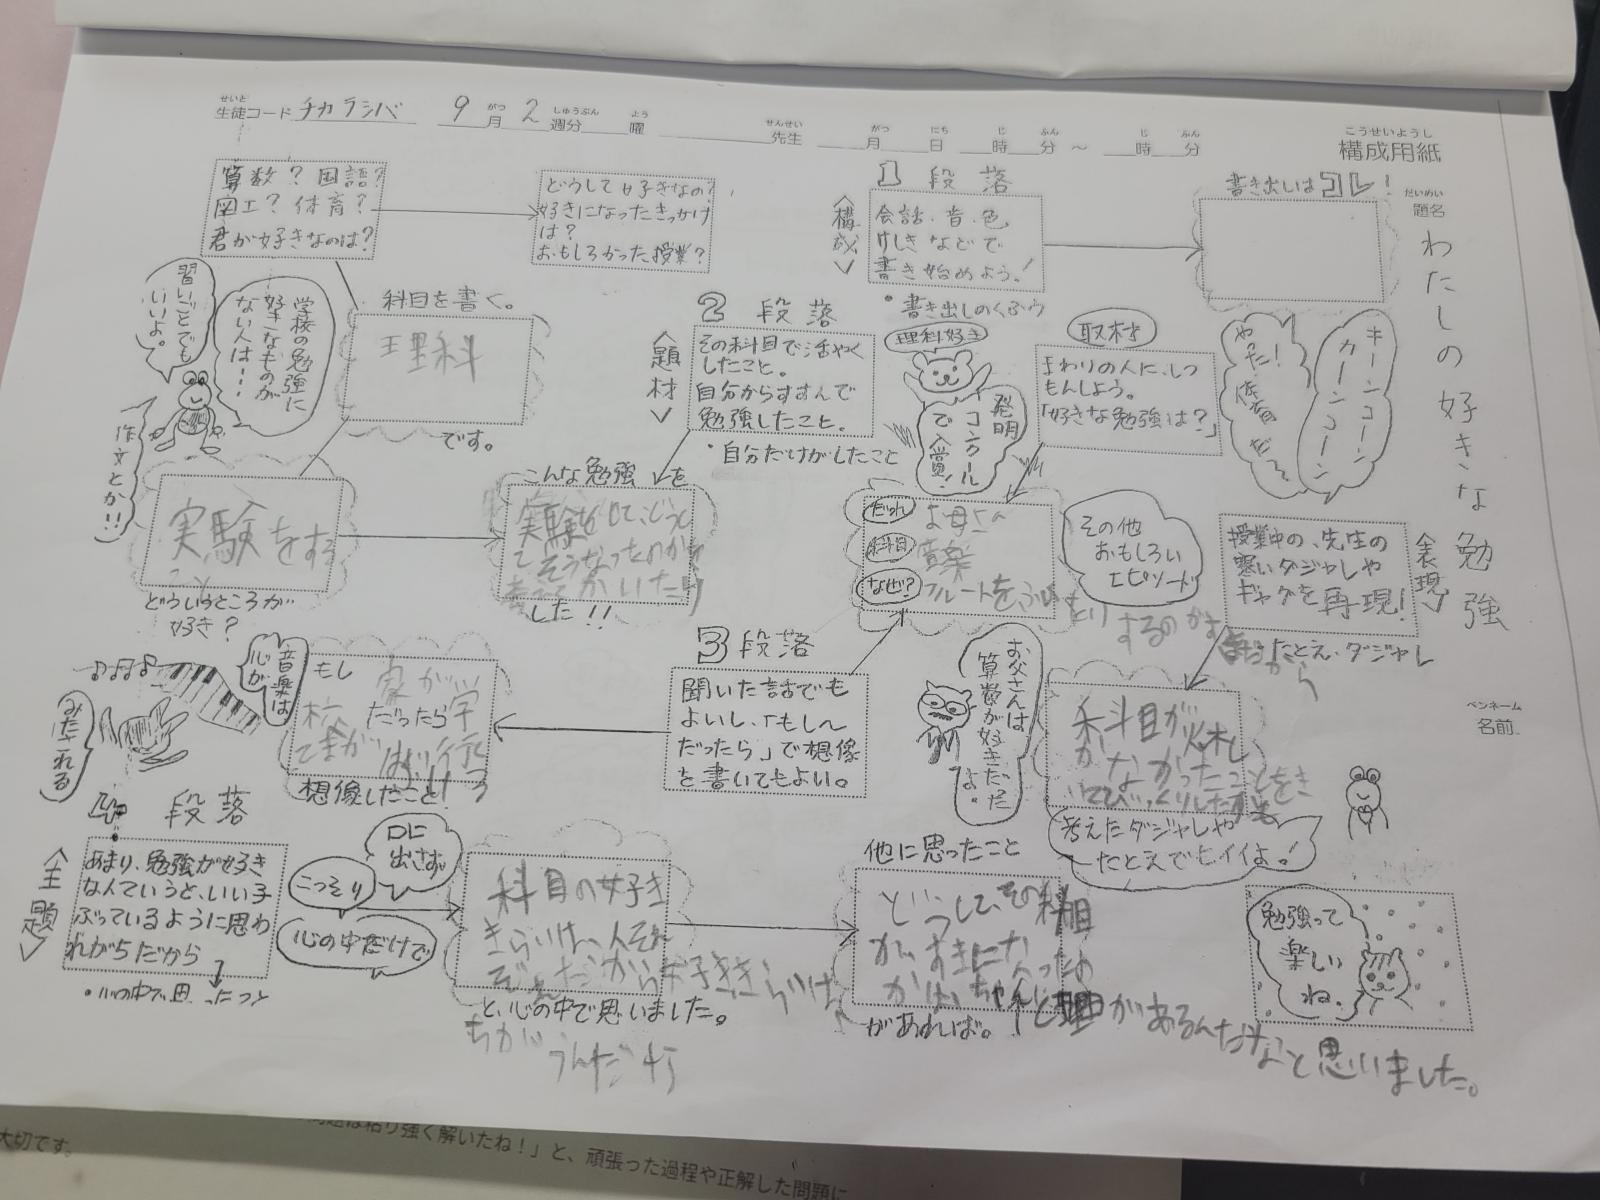 生徒コード チカラシバ 9月 2週分 曜 先生 月 日 時 分 ~ 時 分
構成用紙
題名 わたしの好きな勉強
ペンネーム
名前
1段落
<構成>
会話、音、色、
けしきなどで
書き始めよう!
・書き出しのくふう
書き出しはコレ!
キーンコーン
カーンコーン
やった!
体育だ
算数?国語?
図工?体育?
君が好きなのは?
どうして好きなの?
好きになったきっかけ
は?
おもしろかった授業?
習いごとでも
いいよ。
学校の勉強に
好きなものが
ない人は・・・
作文とか!!
科目を書く。
理科
です。
実験をする
こと
どういうところが
好き?
2段落
<題材>
その科目で活やく
したこと。
自分からすすんで
勉強したこと。
・自分だけがしたこと
理科好き
発明
コンクール
で入賞!
こんな勉強を
実験をして、どうし
てそうなったのか
かいたり
した!!
取材
まわりの人に、しつ
もんしよう。
「好きな勉強は?」
だれ お母さん
科目 音楽
なぜ? フルートを
その他
おもしろい
エピソード
<表現>
授業中の、先生の
寒いダジャレや
ギャグを再現!
たとえ・ダジャレ
3段落
聞いた話でも
よいし、「もし~
だったら」で想像
を書いてもよい。
もし 家が学
校だったら
想像したこと
音楽は
心が
みだれる
お父さんは
算数が好きだった
よ。
科目が
なかったことをき
いてびっくりした
考えたダジャレや
たとえでもイイよ!
4段落
<主題>
あまり、勉強が好き
なんていうと、いい子
ぶっているように思わ
れがちだから
・心の中で思ったこと
口に
出さず
こっそり
心の中だけで
科目の好き
きらいは、人それ
ぞれだから好ききらいは
ちがうんだ
と、心の中で思いました。
他に思ったこと
どうして、その科目
がすきになったの
かはちゃんと理由があるんだなと思いました。
があれば。
勉強って
楽しい
ね。
大切です。
問題は粘り強く解いたね!」と、頑張った過程や正解した問題に